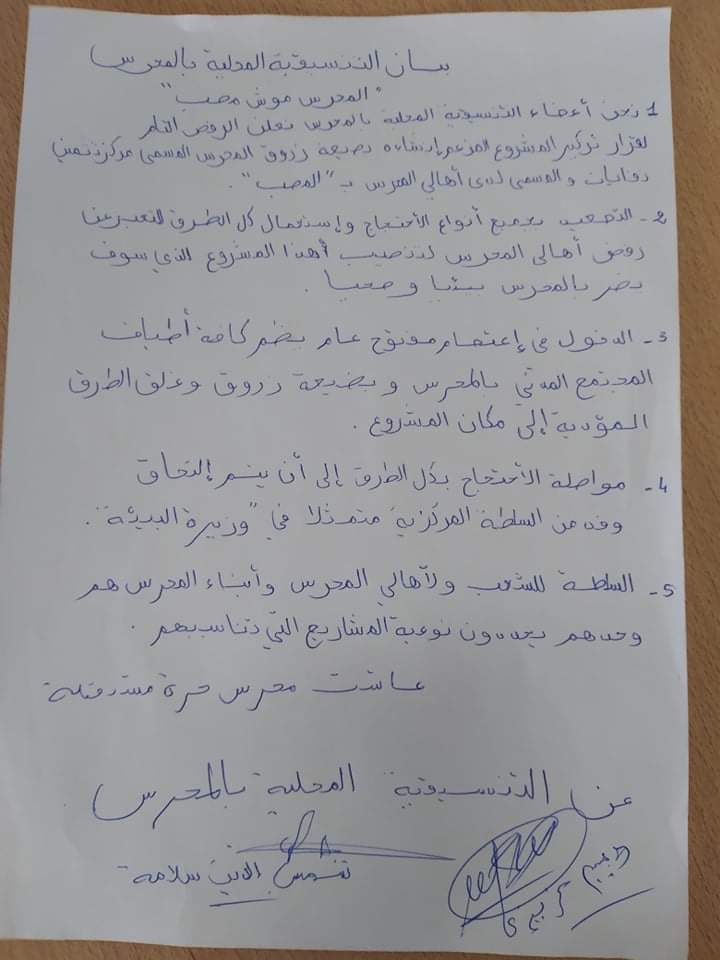 بيان التنسيقية المحلية بالمحرس
"المحرس موش مصب"
1 نحن أعضاء التنسيقية المحلية بالمحرس نعلن الرفض التام
لقرار تركيز المشروع المزعم إنشاءه بضيعة زروق المحرس المسمى مركز تثمين
نفايات والمسمى لدى أهالي المحرس بـ "المصب".
2- التصعيد بجميع أنواع الأحتجاج وإستعمال كل الطرق للتعبير عن
رفض أهالي المحرس لتنصيب أهذا المشروع الذي سوف
يضر بالمحرس بيئيا وصحيا.
3- الدخول في إعتصام مفتوح عام يضم كافة أطياف
المجتمع المدني بالمحرس وبضيعة زروق وغلق الطرق
المؤدية إلى مكان المشروع.
4- مواصلة الأحتجاج بكل الطرق إلى أن يتم إلتحاق
وفد من السلطة المركزية متمثلا في "وزيرة البيئة".
5- السلطة للشعب ولأهالي المحرس وأبناء المحرس هم
وحدهم يحددون نوعية المشاريع التي تناسبهم.
عاشت محرس حرة مستقلة
عن التنسيقية المحلية بالمحرس
شمس الدين سلامة